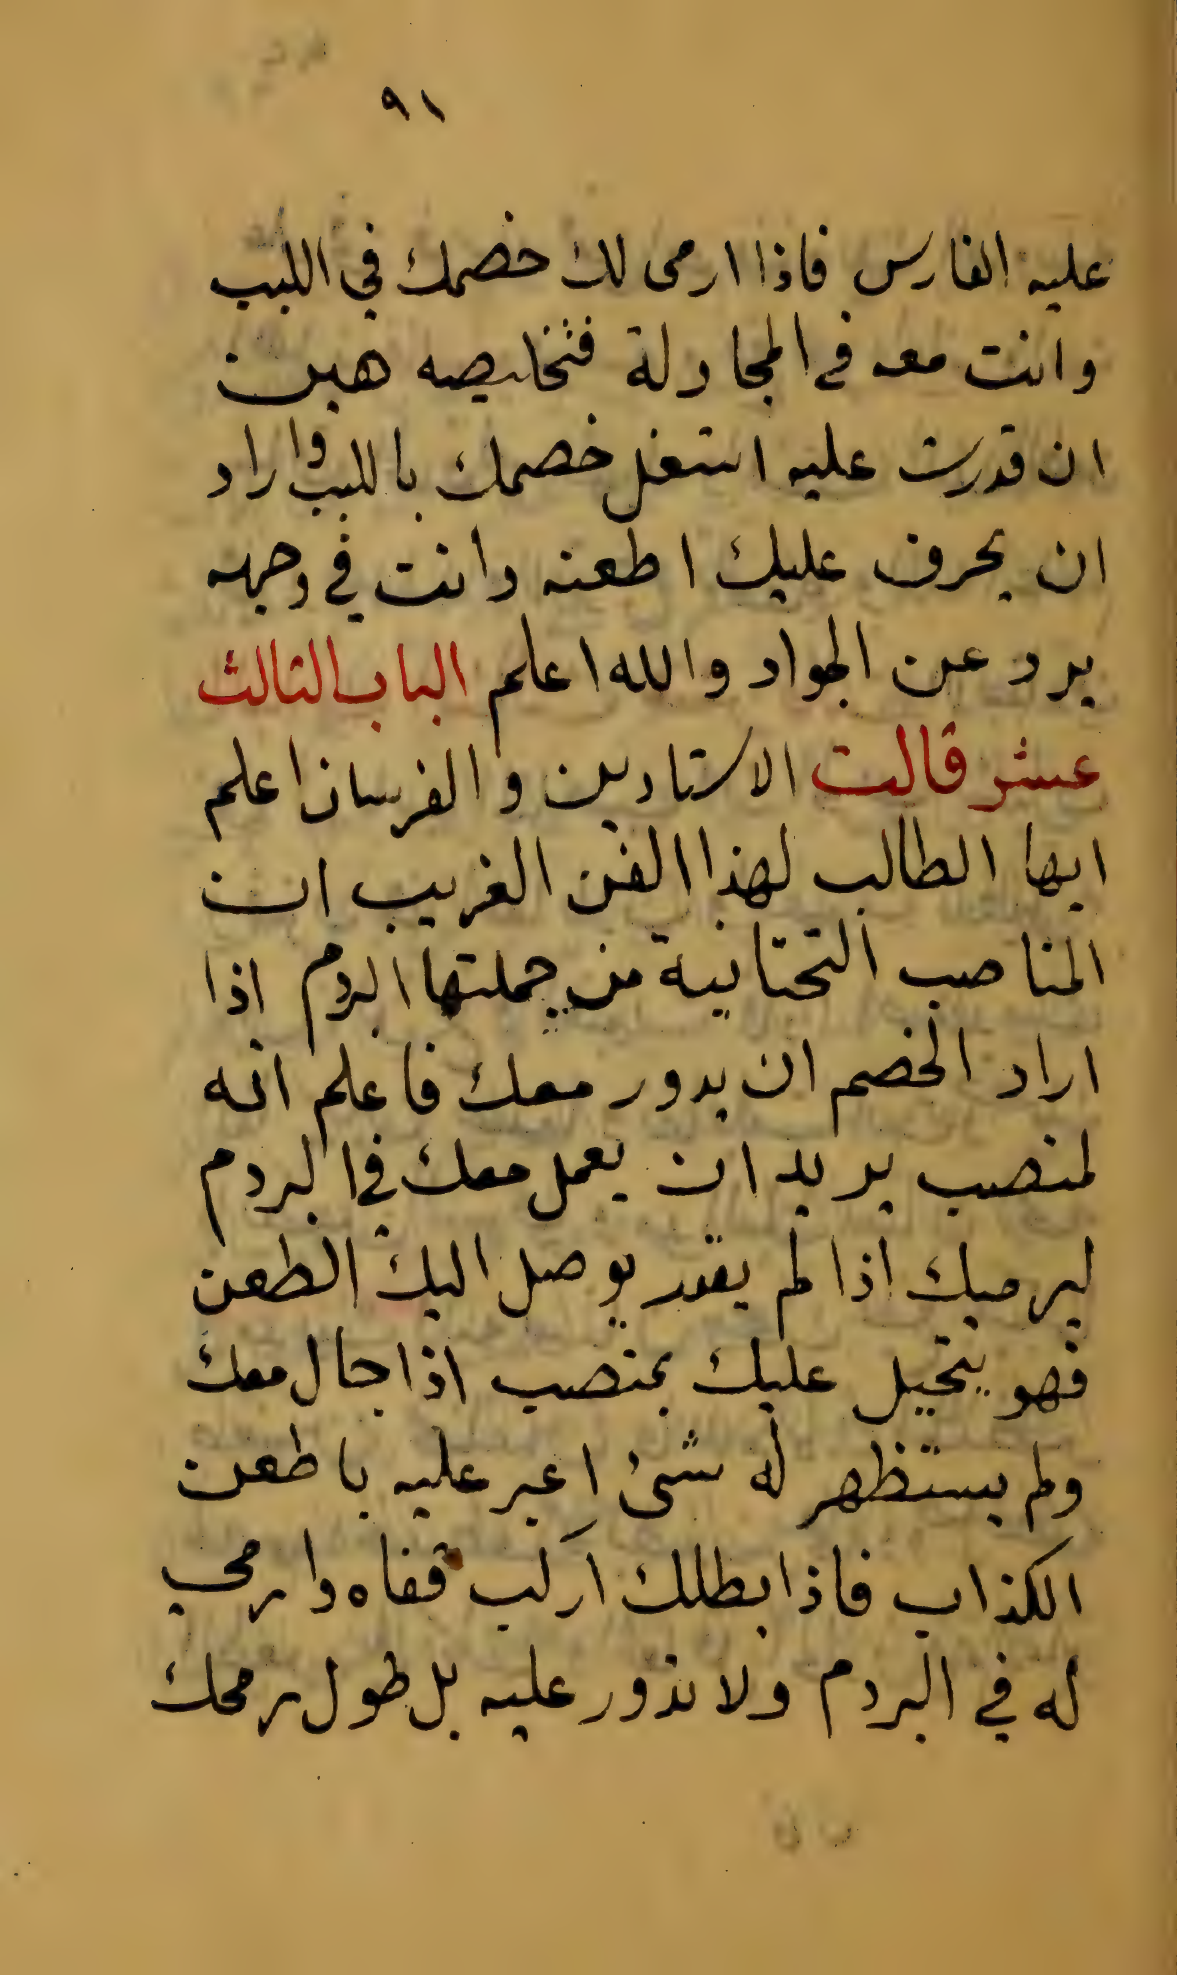 ٩١
عليه الفارس فاذا ارمى لك خصمك في اللبب
وانت معه في المجاولة فتخليصه هين
ان قدرت عليه اشتغل خصمك باللبب واراد
ان يحرف عليك اطعنه وانت في وجهه
يرد عن الجواد والله اعلم الباب الثالث
عشر قالت الاستادين والفرسان اعلم
ايها الطالب لهذا الفن الغريب ان
المناصب التحتانية من جملتها البردم اذا
اراد الخصم ان يدور معك فاعلم انه
لمنصب يريد ان يعمل معك في البردم
ليرميك اذا لم يقدر يوصل اليك الطعن
فهو يتحيل عليك بمنصب اذا جال معك
ولم يستظهر له شئ اعبر عليه باطعن
الكذاب فاذا بطلك اركب قفاه وارمي
له في البردم ولا تدور عليه بل طول رمحك